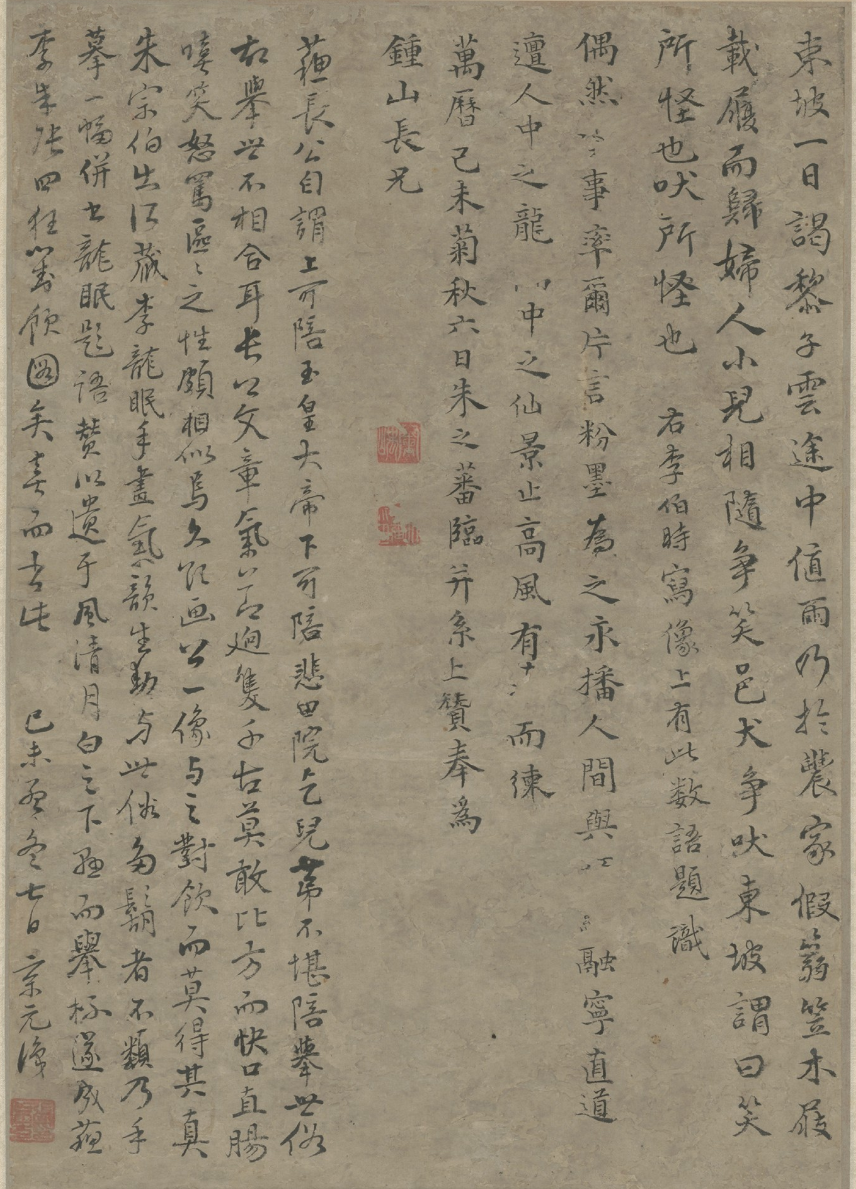 東坡一日謁黎子雲途中值雨乃於農家假蒻笠木屐
載履而歸婦人小兒相隨爭笑邑犬爭吠東坡謂曰笑
所怪也吠所怪也 右李伯時寫像上有此数語題識
偶然 事率爾片言粉墨為之永播人間與 融寧直道
邅人中之龍 中之仙景止高風有 而律
萬曆己未菊秋六日朱之蕃臨并系上贊奉為
鍾山長兄
蘓長公自謂上可陪玉皇大帝下可陪悲田院乞兒第不堪陪舉世俗
舉世不相合耳長公文章氣節迥隻千古莫敢比方而快口直腸
嘻笑怒罵區〻之性頗相似焉久欲画公一像与之對飲而莫得其真
朱宗伯出所蔵李龍眠手畫氣韻生動与世俗多鬍者不類乃手
摹一幅併書龍眠題語贊以遺于風清月白之下 而舉杯遂成蘓
李朱張四狂對飲圖矣喜而書此 己未孟冬七日 元